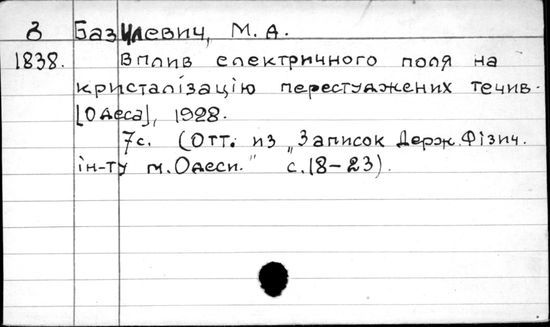 З Базилевич, М. А.
1838. Вплив електричного поля на
кристалізацію перестуджених течив.
[Одеса], 1928.
7с. (Отт. из „Записок Держ. Фізич.
ін-ту м. Одеси." с. 18-23).